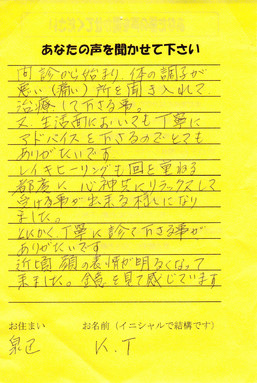 あなたの声を聞かせて下さい
問診から始まり、体の調子が
悪い(痛い)所を聞き入れて
治療して下さる事。
又、生活面においても丁寧に
アドバイスを下さるのでとても
ありがたいです
レイキヒーリングも回を重ねる
都度に心神共にリラックスして
受ける事が出来る様になり
ました。
とにかく丁寧に診て下さる事が
ありがたいです
近頃顔の表情が明るくなって
来ました。鏡を見て感じています
お住まい
お名前(イニシャルで結構です)
泉区
K.T